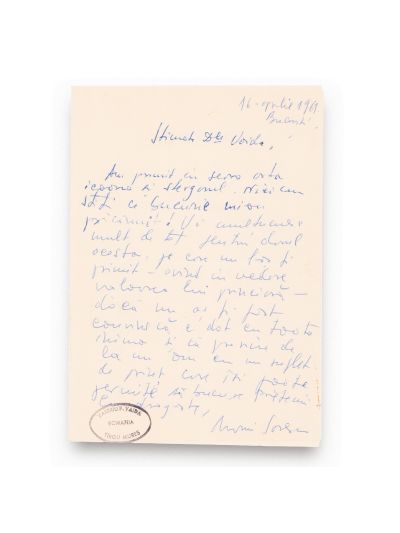 16 - aprilie 1969.
București,
Stimate Dle Vaida,
Am primit în seara asta
icoana și ștergarul. Nici nu
știți ce bucurie mi-au
pricinuit! Vă mulțumesc
mult de tot pentru darul
acesta, pe care nu l-aș fi
primit – având în vedere
valoarea lui principală –
dacă nu aș fi fost
convinsă că e dat cu toată
inima și că provine de
la un om cu un suflet
de
care își poate
permite să bucure prietenii
dragoste,
Marin Sorescu
ROMANIA
TIRGU MUREȘ